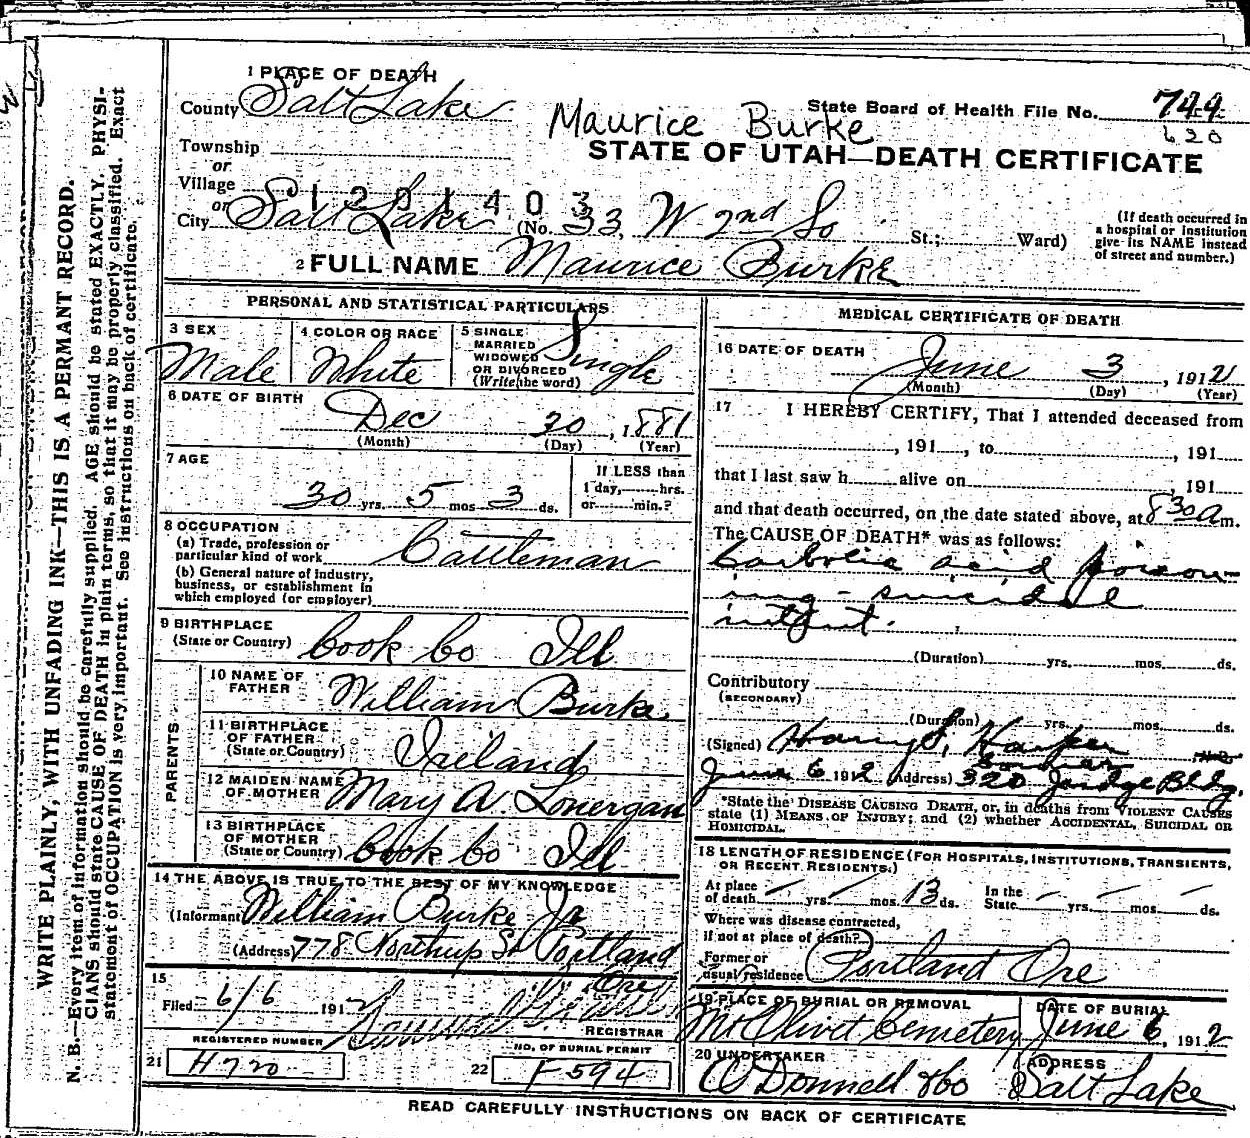 WRITE PLAINLY, WITH UNFADING INK—THIS IS A PERMANT RECORD.
N. B.—Every item of information should be carefully supplied. AGE should be stated EXACTLY. PHYSI-
CIANS should state CAUSE OF DEATH in plain terms, so that it may be properly classified. Exact
statement of OCCUPATION is very important. See instructions on back of certificate.
1 PLACE OF DEATH
County Salt Lake
State Board of Health File No. 744
620
Maurice Burke
STATE OF UTAH—DEATH CERTIFICATE
Township
or
Village
1201403
or
City Salt Lake (No. 33, W 2nd So St.; Ward)
(If death occurred in
a hospital or institution
give its NAME instead
of street and number.)
2 FULL NAME Maurice Burke
PERSONAL AND STATISTICAL PARTICULARS
3 SEX
Male
4 COLOR OR RACE
White
5 SINGLE
MARRIED
WIDOWED
OR DIVORCED
(Write the word)
Single
6 DATE OF BIRTH
Dec 30, 1881
(Month) (Day) (Year)
7 AGE
30 yrs. 5 mos 3 ds.
If LESS than
1 day, hrs.
or min.?
8 OCCUPATION
(a) Trade, profession or
particular kind of work Cattleman
(b) General nature of industry,
business, or establishment in
which employed (or employer)
9 BIRTHPLACE
(State or Country) Cook Co Ill
PARENTS
10 NAME OF
FATHER William Burke
11 BIRTHPLACE
OF FATHER
(State or Country) Ireland
12 MAIDEN NAME
OF MOTHER Mary A. Lonergan
13 BIRTHPLACE
OF MOTHER
(State or Country) Cook Co Ill
14 THE ABOVE IS TRUE TO THE BEST OF MY KNOWLEDGE
(Informant William Burke Jr
(Address) 778 Northrup St Portland
Ore)
15
Filed 6/6 1912
REGISTRAR
REGISTERED NUMBER
21 H720
NO. OF BURIAL PERMIT
22 F594
MEDICAL CERTIFICATE OF DEATH
16 DATE OF DEATH
June 3, 1912
(Month) (Day) (Year)
17 I HEREBY CERTIFY, That I attended deceased from
, 191 , to , 191
that I last saw h alive on , 191
and that death occurred, on the date stated above, at 830 a m.
The CAUSE OF DEATH* was as follows:
Carbolic acid poison-
ing - suicidal
intent.
(Duration) yrs. mos. ds.
Contributory
(SECONDARY)
(Duration) yrs. mos. ds.
(Signed) Harry S. Harper M.D.
Coroner
June 6 1912 (Address) 320 Judge Bldg.
*State the DISEASE CAUSING DEATH, or, in deaths from VIOLENT CAUSES
state (1) MEANS OF INJURY; and (2) whether ACCIDENTAL, SUICIDAL OR
HOMICIDAL.
18 LENGTH OF RESIDENCE (FOR HOSPITALS, INSTITUTIONS, TRANSIENTS,
OR RECENT RESIDENTS.)
At place
of death — yrs. — mos. 13 ds.
In the
State — yrs. — mos. — ds.
Where was disease contracted,
if not at place of death?
Former or
usual residence Portland Ore
19 PLACE OF BURIAL OR REMOVAL
Mt Olivet Cemetery
DATE OF BURIAL
June 6, 1912
20 UNDERTAKER
O'Donnell & Co
ADDRESS
Salt Lake
READ CAREFULLY INSTRUCTIONS ON BACK OF CERTIFICATE